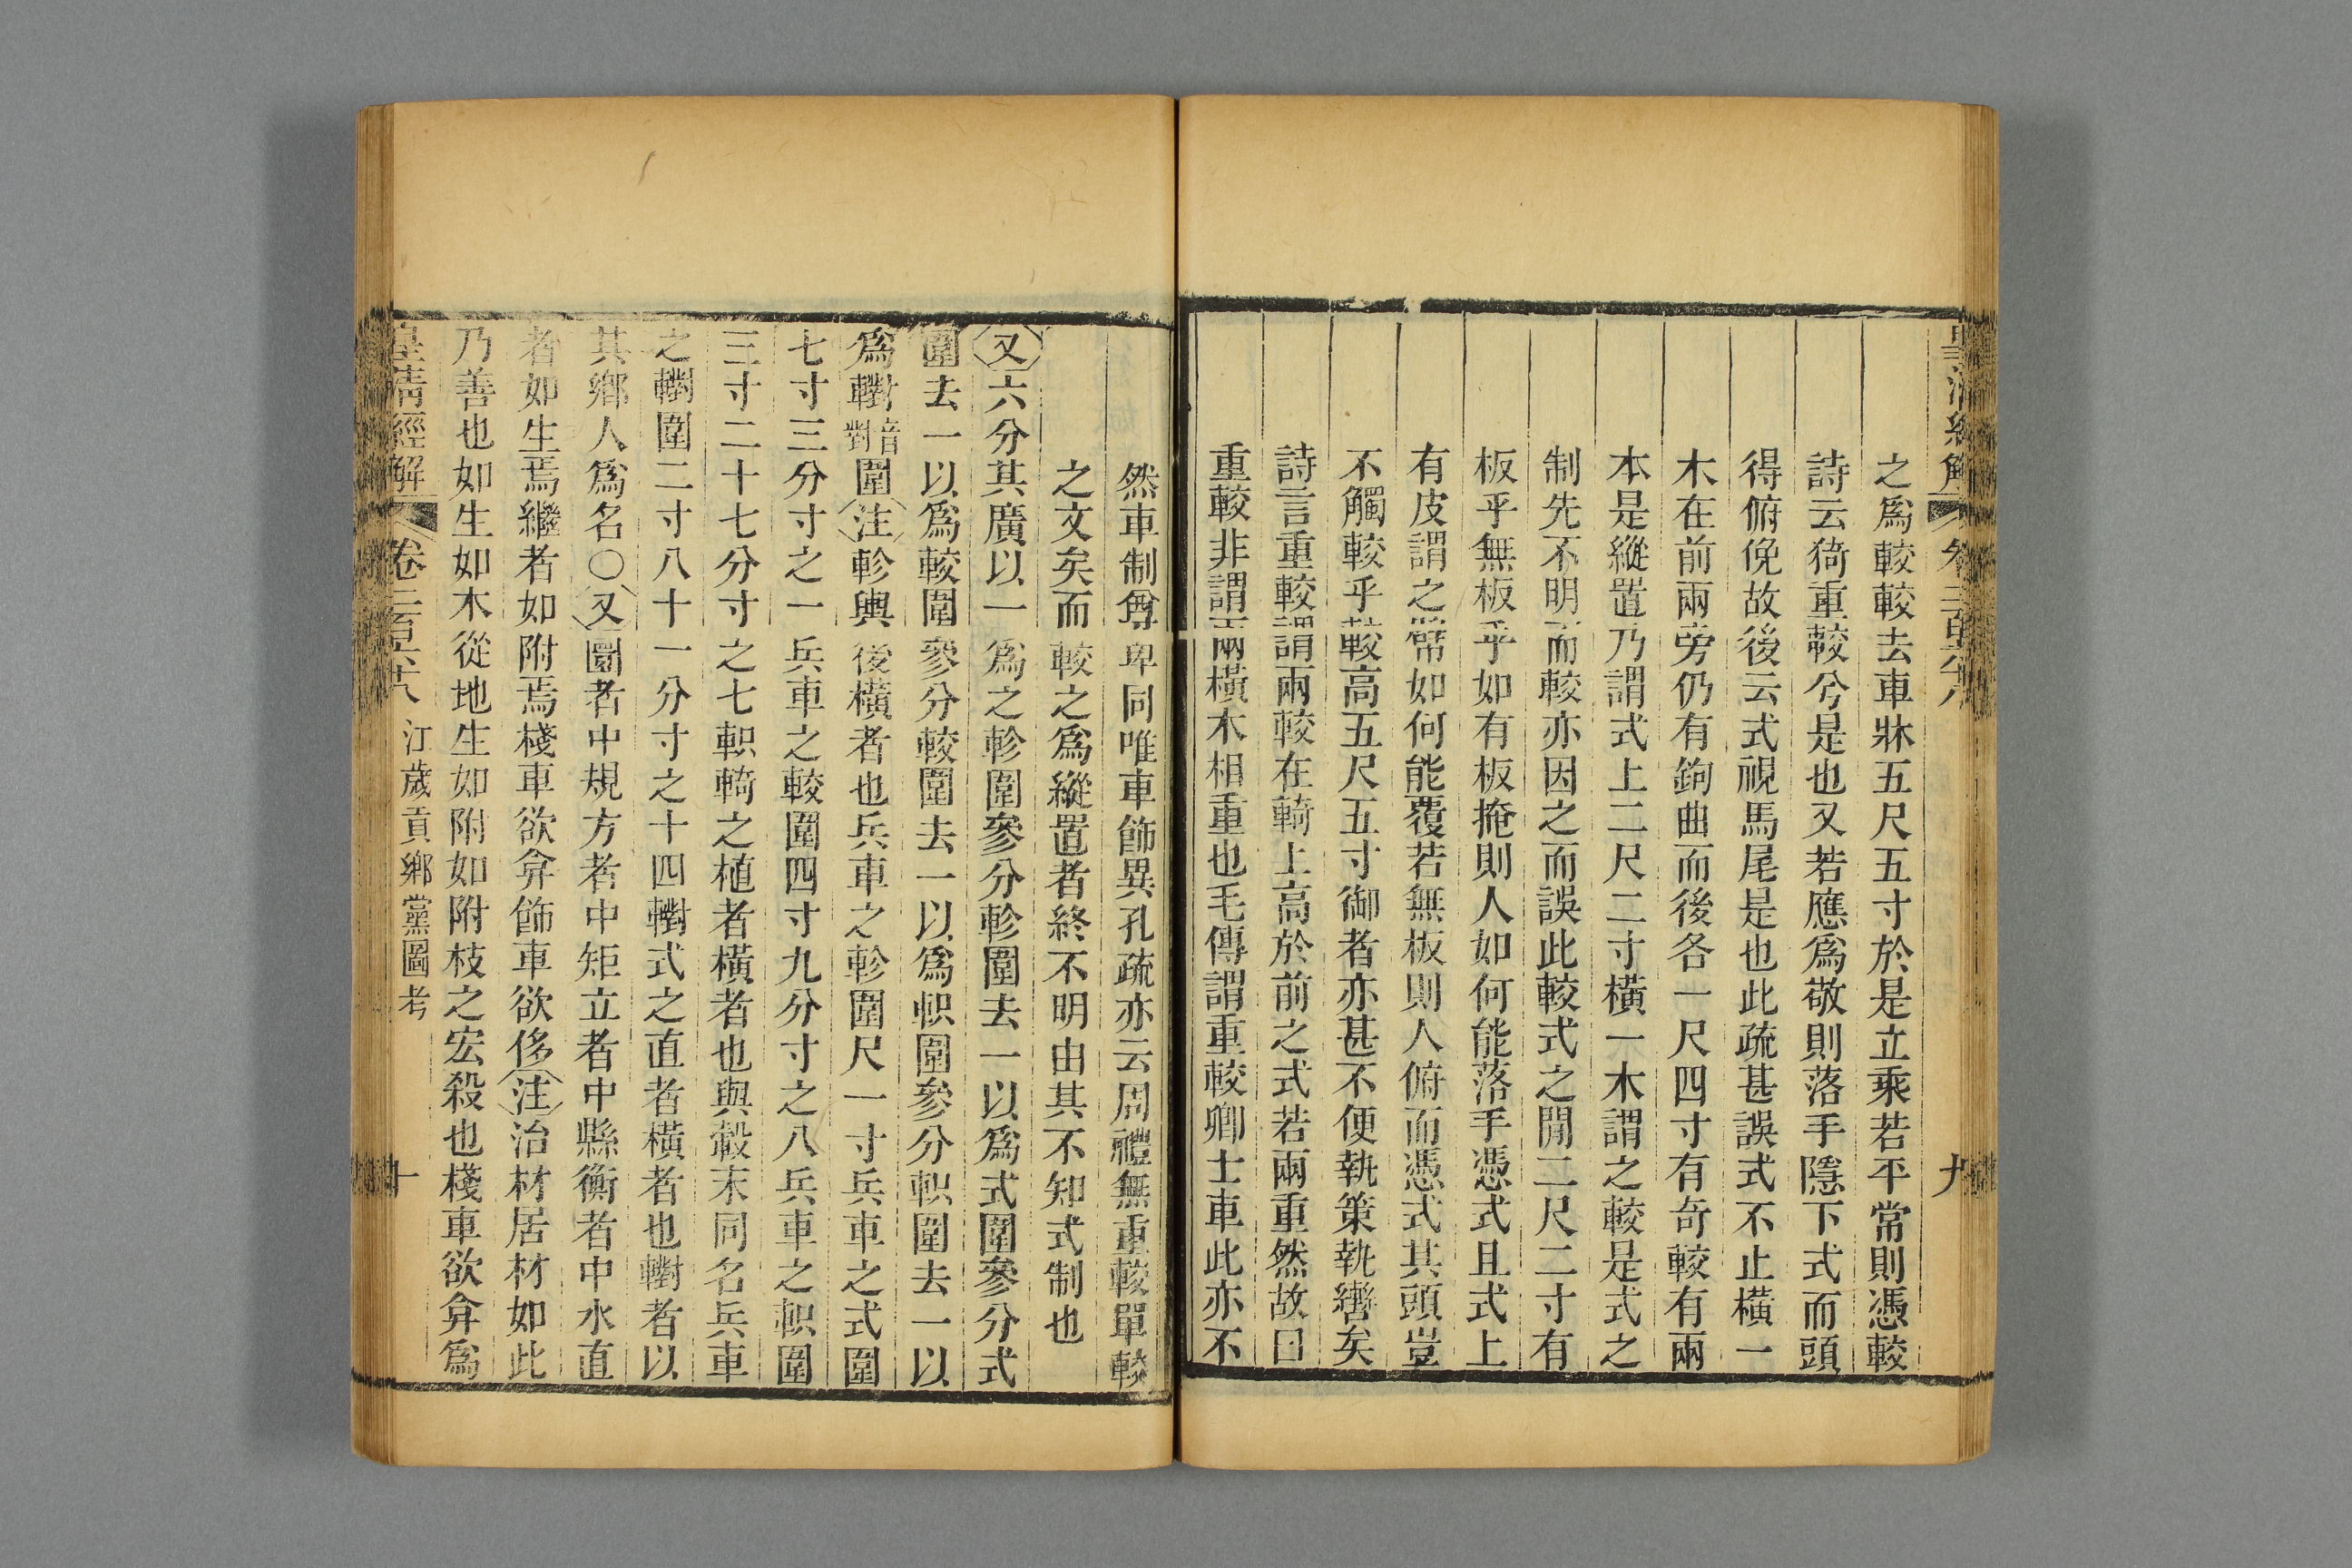 皇清經解 卷二百六十八 九
之爲較較去車牀五尺五寸於是立乘若平常則憑較
詩云猗重較兮是也又若應爲敬則落手隱下式而頭
得俯俛故後云式視馬尾是也此疏甚誤式不止橫一
木在前兩旁仍有鉤曲而後各一尺四寸有奇較有兩
本是縱置乃謂式上二尺二寸橫一木謂之較是式之
制先不明而較亦因之而誤此較式之閒二尺二寸有
板乎無板乎如有板掩則人如何能落手憑式且式上
有皮謂之幦如何能覆若無板則人俯而憑式其頭豈
不觸較乎較高五尺五寸御者亦甚不便執策執轡矣
詩言重較謂兩較在輢上高於前之式若兩重然故曰
重較非謂兩橫木相重也毛傳謂重較卿士車此亦不
然車制尊卑同唯車飾異孔疏亦云周禮無重較單較
之文矣而較之爲縱置者終不明由其不知式制也
又六分其廣以一爲之軫圍參分軫圍去一以爲式圍參分式
圍去一以爲較圍參分較圍去一以爲軹圍參分軹圍去一以
爲轛音對圍注軫輿後橫者也兵車之軫圍尺一寸兵車之式圍
七寸三分寸之一兵車之較圍四寸九分寸之八兵車之軹圍
三寸二十七分寸之七軹輢之植者橫者也與轂末同名兵車
之轛圍二寸八十一分寸之十四轛式之直者橫者也轛者以
其鄉人爲名〇又圜者中規方者中矩立者中縣衡者中水直
者如生焉繼者如附焉棧車欲弇飾車欲侈注治材居材如此
乃善也如生如木從地生如附如附枝之宏殺也棧車欲弇爲
皇清經解 卷二百六十八 江歲貢鄉黨圖考 十